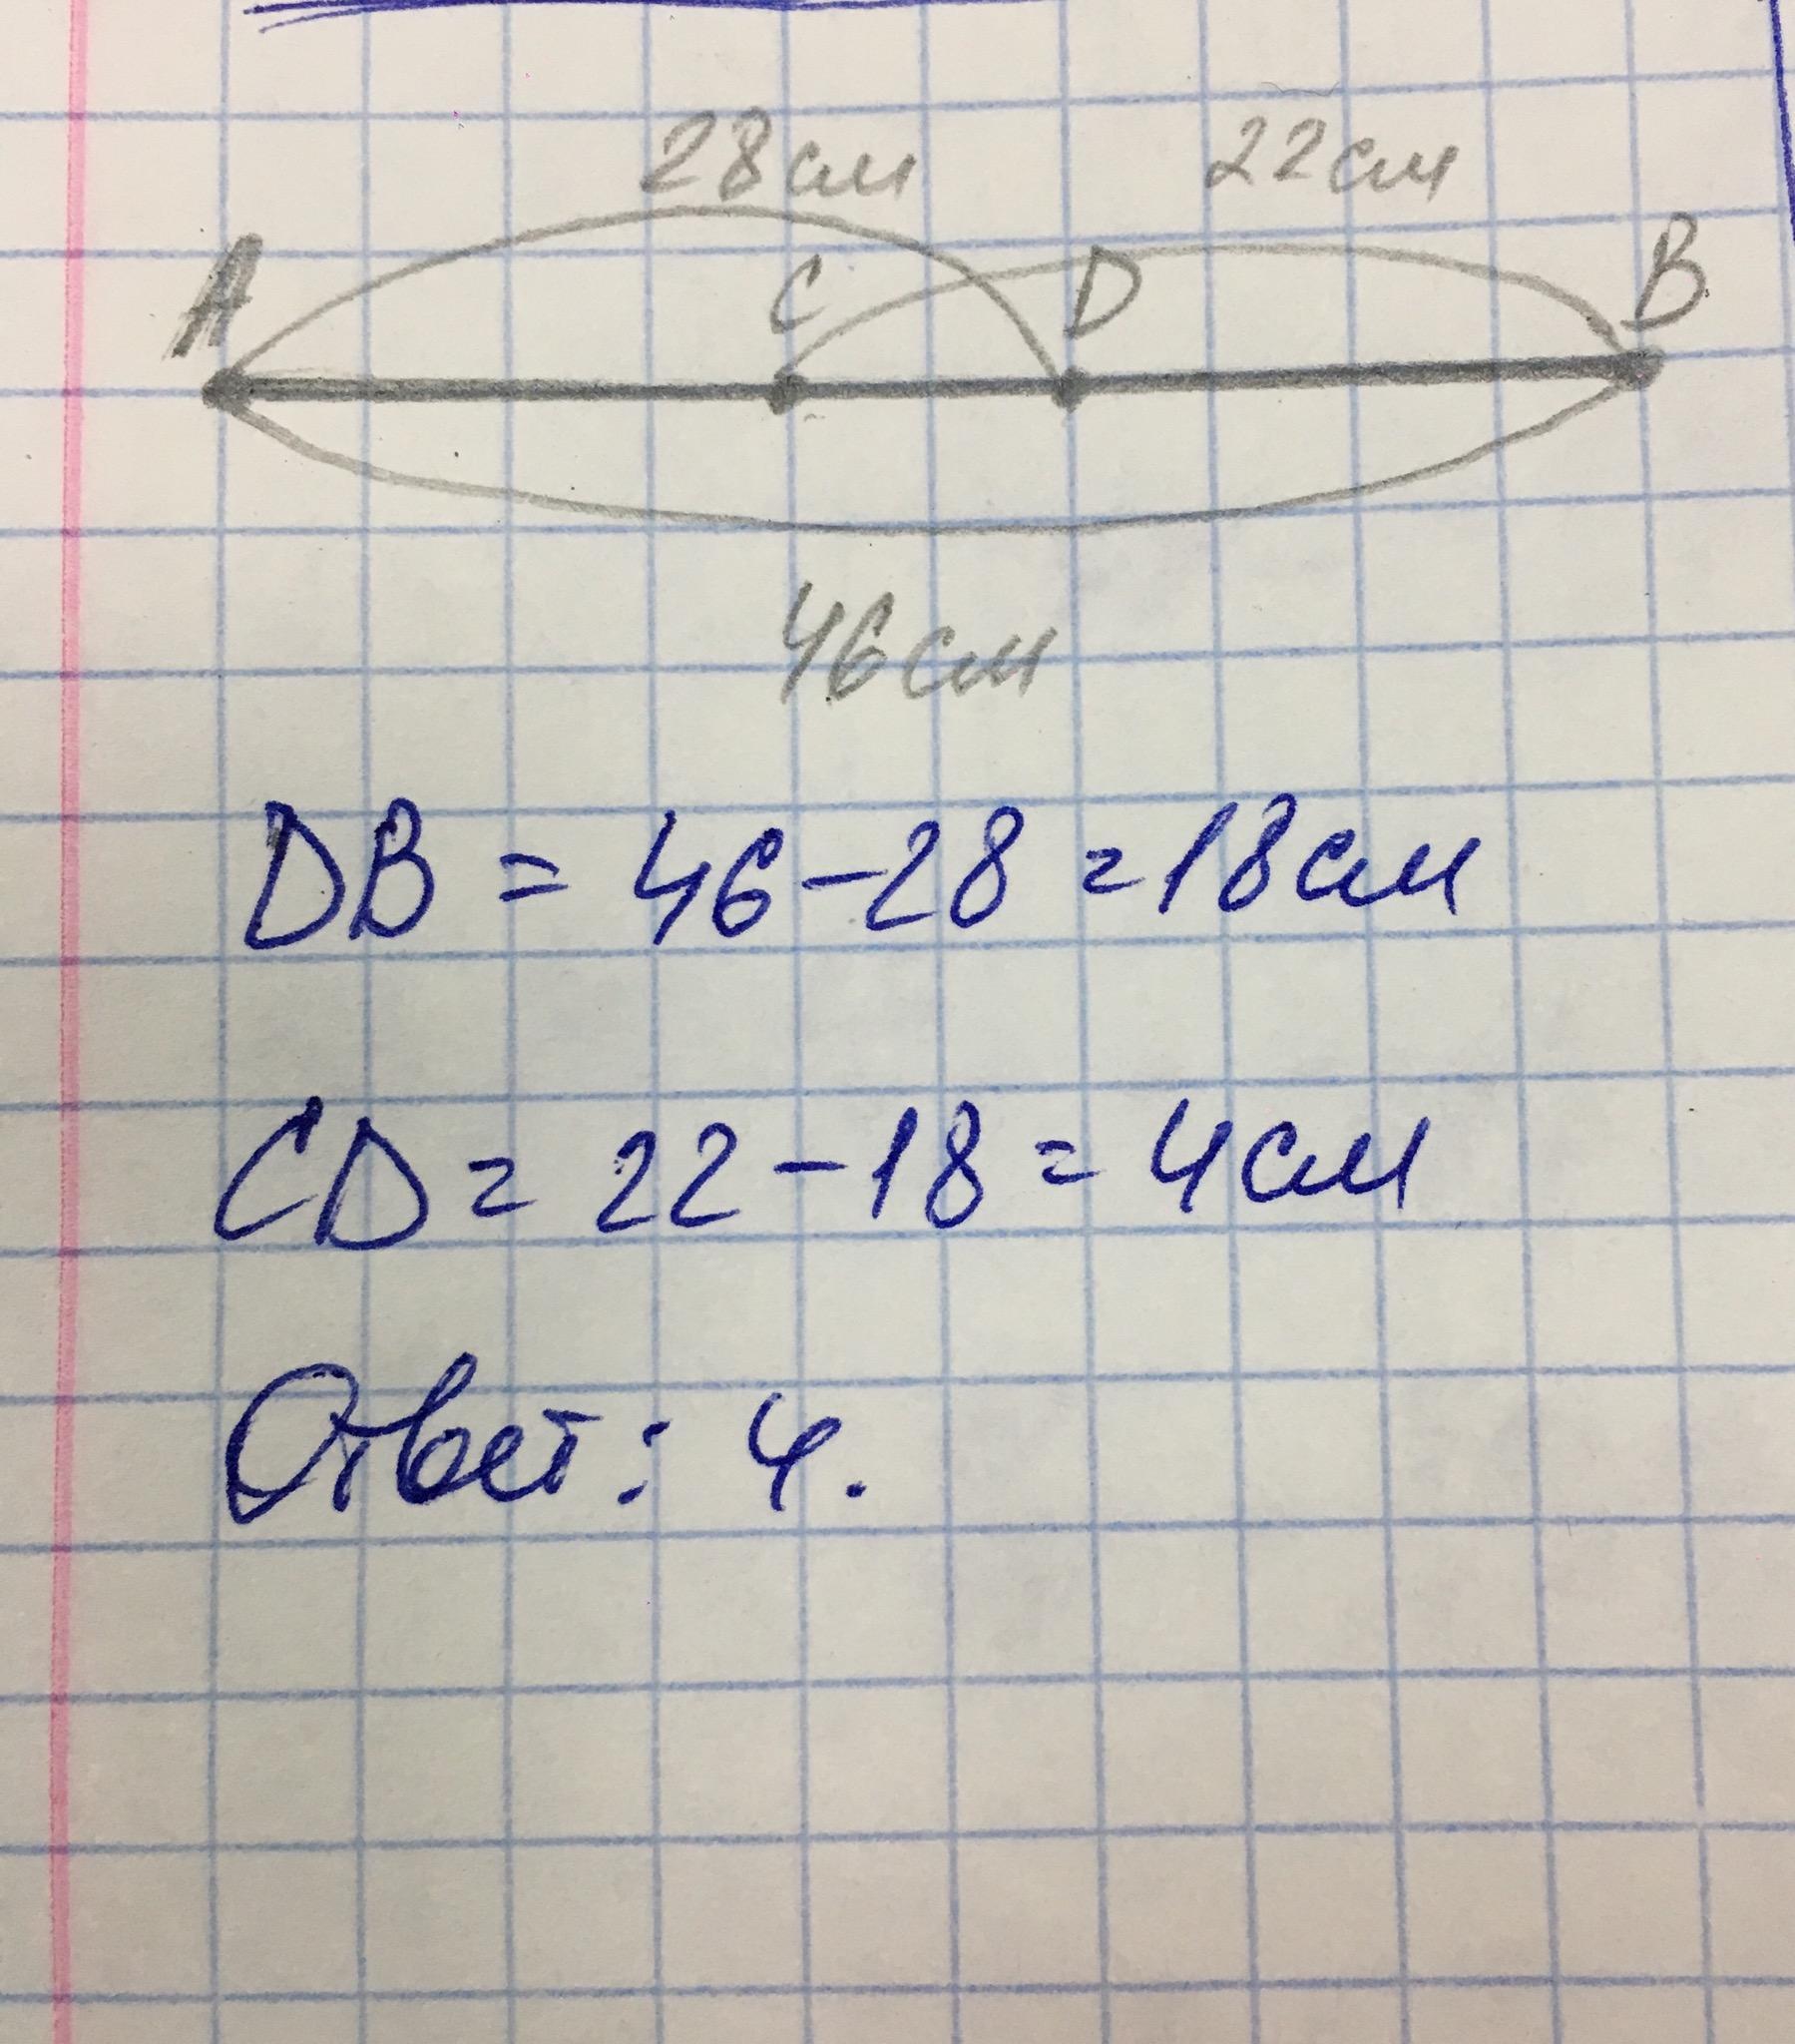 28см 22см
A C D B
46см
DB = 46-28 = 18см
CD = 22-18 = 4см
Ответ: 4.